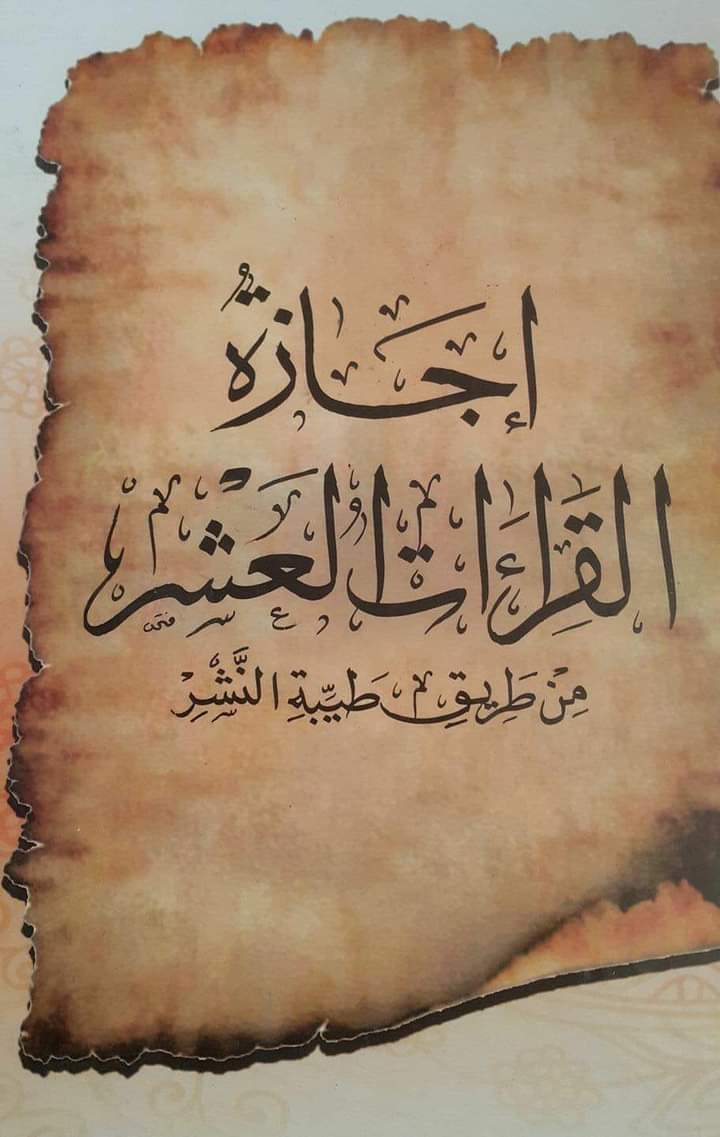 إِجَازَةُ
القِرَاءَاتِ العَشْرِ
مِنْ طَرِيقِ طَيِّبَةِ النَّشْرِ